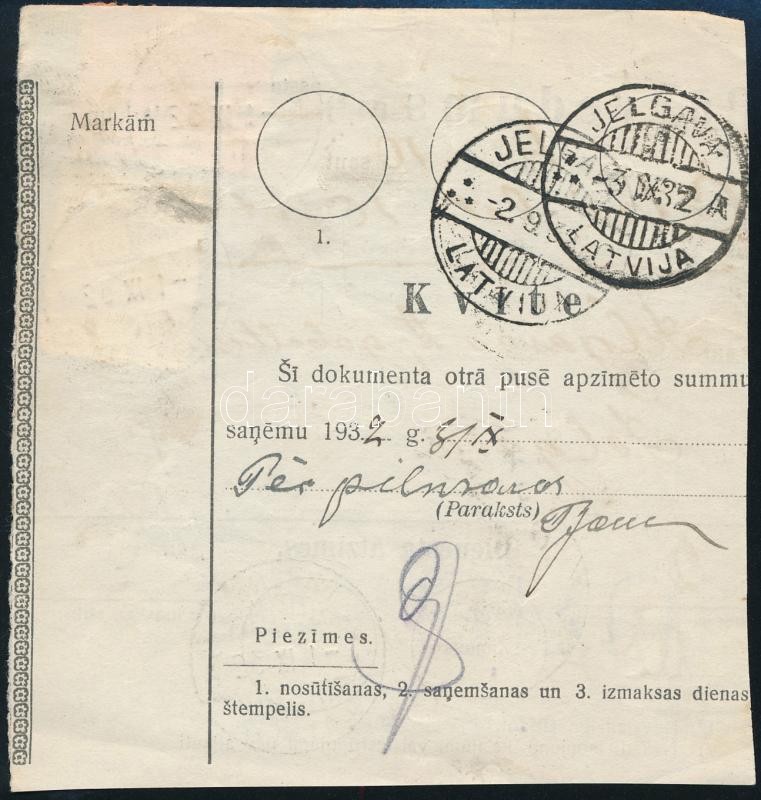 Markām
JELGAVA
-3 IX 32 A
LATVIJA
JELGA
-2.9.3
LATVIJA
1.
Kvīte
Šī dokumenta otrā pusē apzīmēto summu
saņēmu 1932 g. 3/IX
Pēc pilnvaras
(Paraksts)
darabanth
Piezīmes.
1. nosūtīšanas, 2. saņemšanas un 3. izmaksas dienas
štempelis.